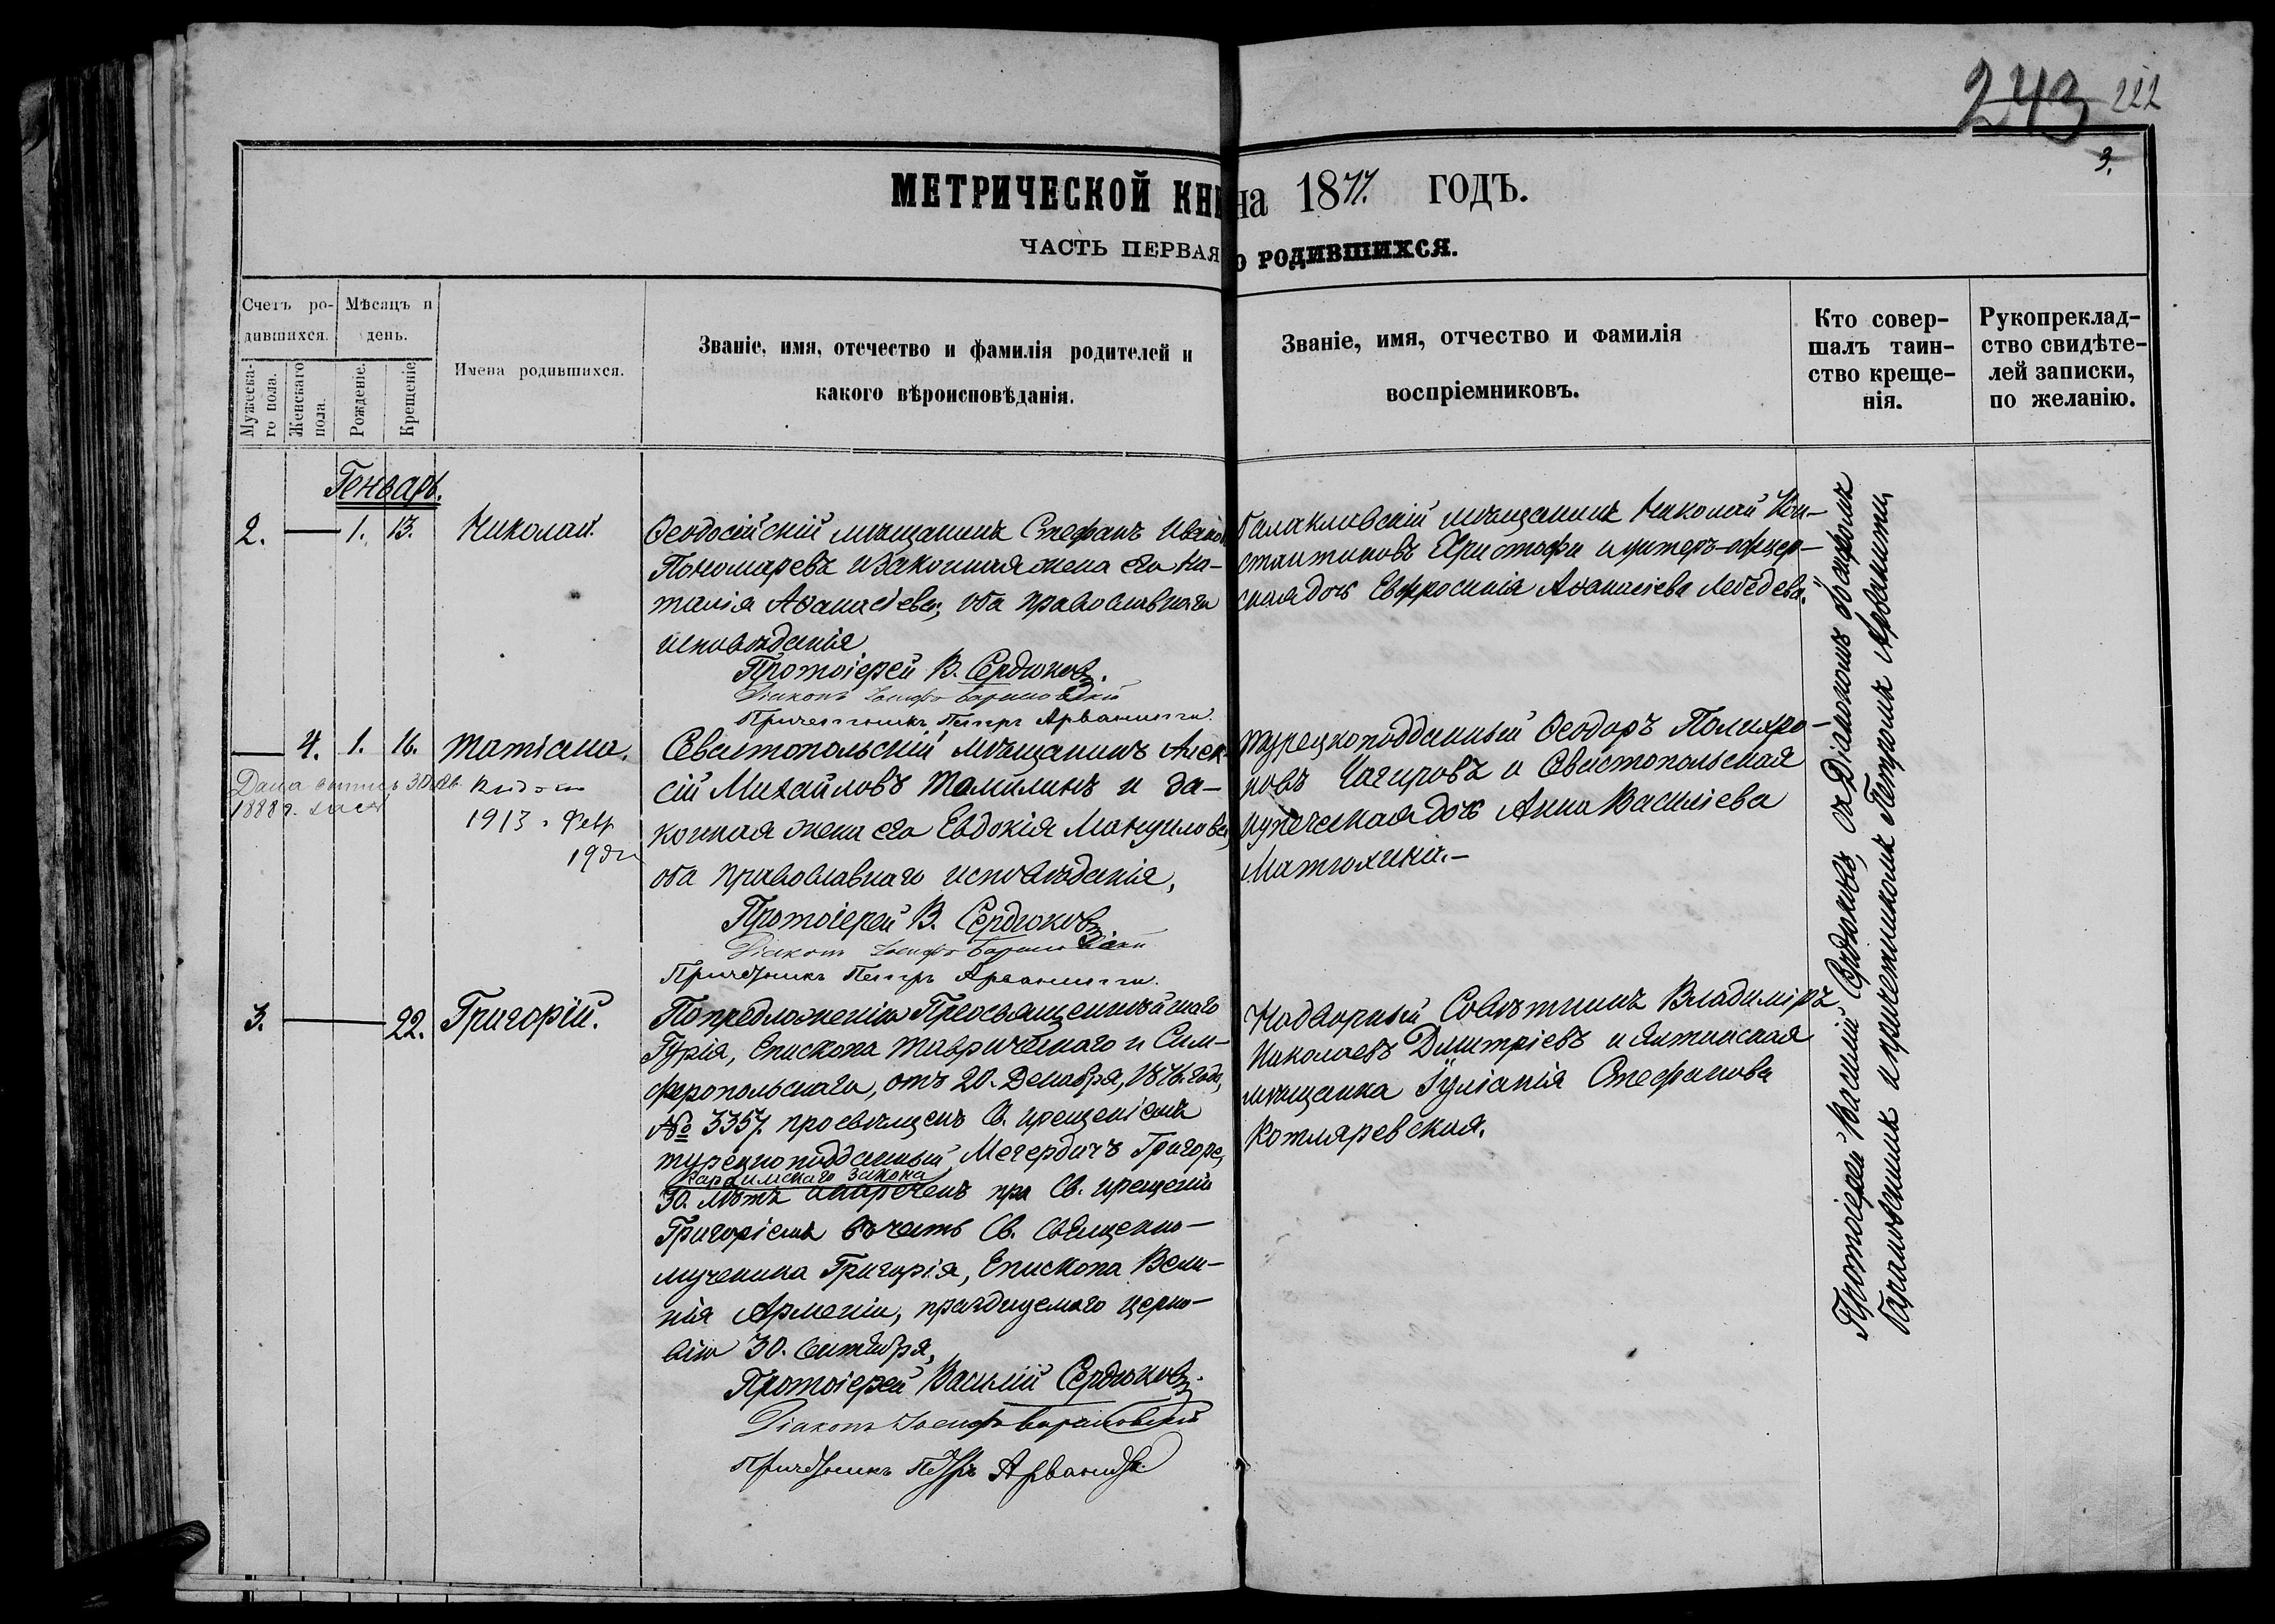 243 222
3.
МЕТРИЧЕСКОЙ КНИ на 1877. ГОДЪ.
ЧАСТЬ ПЕРВАЯ о РОДИВШИХСЯ.
Счетъ ро-
дившихся.
Мужеска-
го пола.
Женскаго
пола.
Мѣсяцъ и
день.
Рожденіе.
Крещеніе.
Имена родившихся.
Званіе, имя, отечество и фамилія родителей и
какого вѣроисповѣданія.
Званіе, имя, отчество и фамилія
воспріемниковъ.
Кто совер-
шалъ таин-
ство креще-
нія.
Рукоприклад-
ство свидѣте-
лей записки,
по желанію.
Генварь.
2. — 1. 13. Николай.
Ѳеодосійскій мѣщанинъ Стефанъ Иванов
Пономаревъ и законная жена его На-
талія Аѳанасіева, оба православнаго
исповѣданія
Протоіерей В. Сердюковъ.
Діаконъ Іосифъ Барановскій
Причетникъ Петръ Арванити.
Балаклавскій мѣщанинъ Николай Кон-
стантиновъ Христофи и унтеръ-офицер-
ская дочь Евфросинія Аѳанасіева Лебедева.
— 4. 1. 16. Татіана.
Дана выпись 30
1888 г.
1913 г. Февр
19 дн
Севастопольскій мѣщанинъ Алек-
сій Михайловъ Томилинъ и за-
конная жена его Евдокія Мануилова,
оба православнаго исповѣданія,
Протоіерей В. Сердюковъ
Діаконъ Іосифъ Барановскій
Причетникъ Петръ Арванити.
турецкоподданный Ѳеодоръ Полихро-
новъ Чагировъ и Севастопольская
купеческая дочь Анна Василіева
Матюхина.—
3. — 22. Григорій.
По предложенію Преосвященнѣйшаго
Гурія, Епископа Таврическаго и Сим-
феропольскаго, отъ 20. Декабря, 1876. года,
№ 3357. просвѣщенъ Св. крещеніемъ
турецкоподданный Мегердичъ Григоре,
закона
30. лѣтъ и нареченъ при Св. крещеніи
Григоріемъ въ честь Св. Священно-
мученика Григорія, Епископа Вели-
кія Арменіи, празднуемаго церко-
вію 30. Сентября,
Протоіерей Василій Сердюковъ.
Діаконъ Іосифъ Барановскій
Причетникъ Петръ Арванити
Надворный Совѣтникъ Владиміръ
Николаевъ Димитріевъ и Ялтинская
мѣщанка Іуліанія Стефанова
Котляревская.
Протоіерей Василій Сердюковъ, съ Діакономъ Іосифомъ
Барановскимъ и причетникомъ Петромъ Арванити.